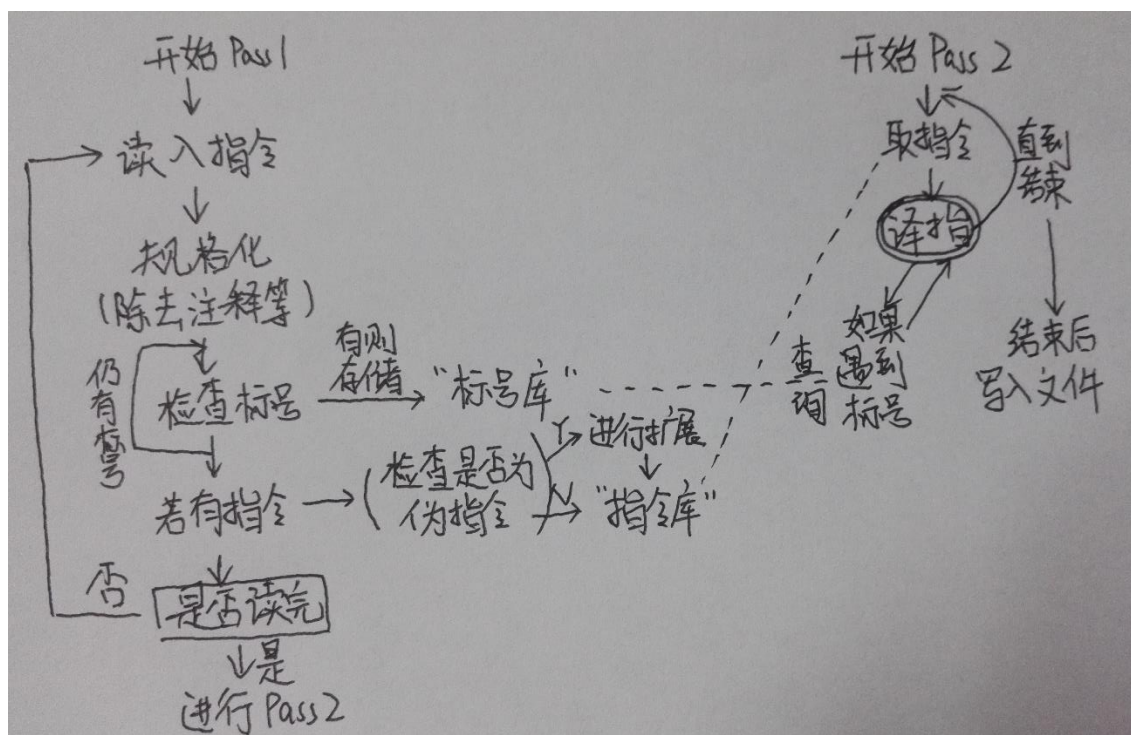 开始 Pass1
读入指令
规格化
(除去注释等)
仍有标号
检查标号
有则
存储
"标号库"
若有指令
(检查是否为
伪指令)
Y
进行扩展
N
"指令库"
否
是否读完
是
进行 Pass2
开始 Pass 2
取指令
直到
结束
译指
如果
遇到
标号
查询
结束后
写入文件